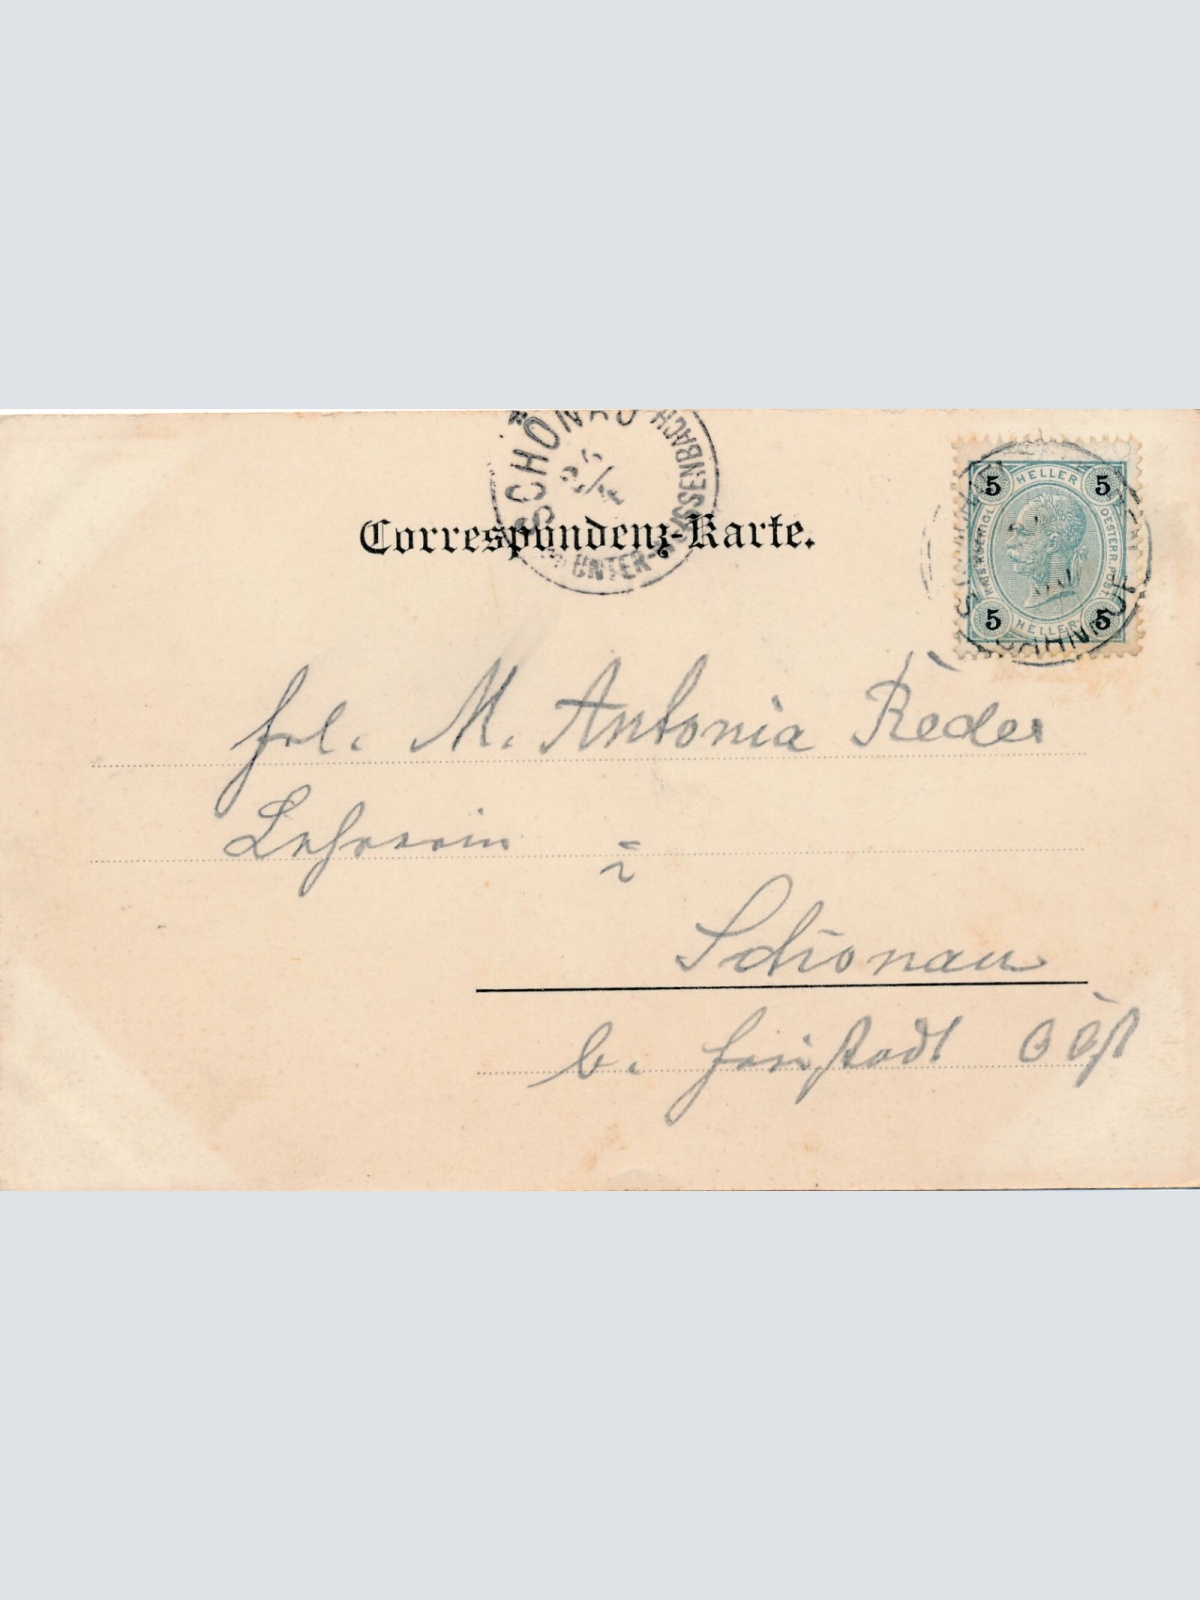 SCHÖNAU
UNTER-WEISSENBACH
Correspondenz-Karte.
5 HELLER 5
KAIS. KOENIGL. OESTERR. POST.
5 HELLER 5
BAHNHOF
Frl. M. Antonia Reder
Lehrerin
Schönau
b. Freistadt